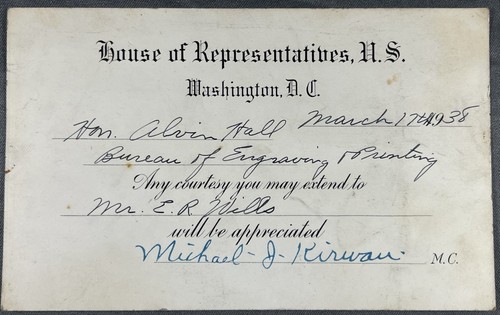 House of Representatives, U.S.
Washington, D.C.
March 17th, 1938
Hon. Alvin Hall
Bureau of Engraving & Printing
Any courtesy you may extend to
Mr. E. R. Wills
will be appreciated
Michael J. Kirwan M.C.